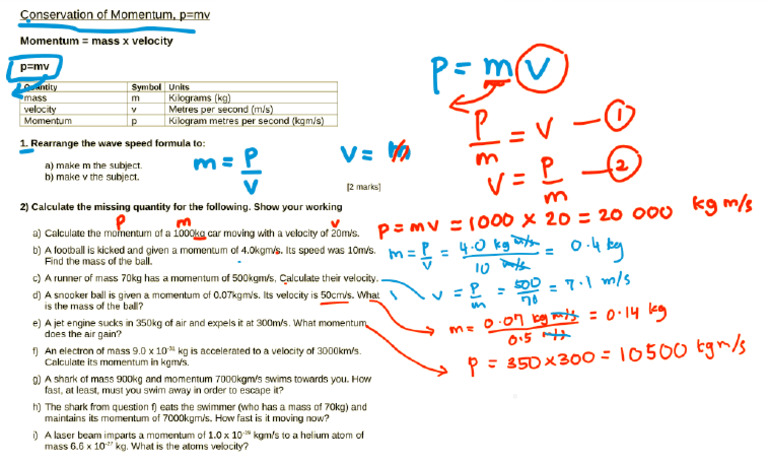 Conservation of Momentum, p=mv
Momentum = mass x velocity
p=mv
Quantity Symbol Units
mass m Kilograms (kg)
velocity v Metres per second (m/s)
Momentum p Kilogram metres per second (kgm/s)
1. Rearrange the wave speed formula to:
a) make m the subject.
b) make v the subject.
[2 marks]
m = P/V
V = m
P = m V
P/m = V — ①
V = P/m — ②
2) Calculate the missing quantity for the following. Show your working
P m v
a) Calculate the momentum of a 1000kg car moving with a velocity of 20m/s.
P = mv = 1000 × 20 = 20 000 kg m/s
b) A football is kicked and given a momentum of 4.0kgm/s. Its speed was 10m/s.
Find the mass of the ball.
m = P/V = 4.0 kg m/s / 10 m/s = 0.4 kg
c) A runner of mass 70kg has a momentum of 500kgm/s, Calculate their velocity.
V = P/m = 500/70 = 7.1 m/s
d) A snooker ball is given a momentum of 0.07kgm/s. Its velocity is 50cm/s. What
is the mass of the ball?
m = 0.07 kg m/s / 0.5 m/s = 0.14 kg
e) A jet engine sucks in 350kg of air and expels it at 300m/s. What momentum
does the air gain?
P = 350 × 300 = 10500 kgm/s
f) An electron of mass 9.0 x 10⁻³¹ kg is accelerated to a velocity of 3000km/s.
Calculate its momentum in kgm/s.
g) A shark of mass 900kg and momentum 7000kgm/s swims towards you. How
fast, at least, must you swim away in order to escape it?
h) The shark from question f) eats the swimmer (who has a mass of 70kg) and
maintains its momentum of 7000kgm/s. How fast is it moving now?
i) A laser beam imparts a momentum of 1.0 x 10⁻²⁶ kgm/s to a helium atom of
mass 6.6 x 10⁻²⁷ kg. What is the atoms velocity?